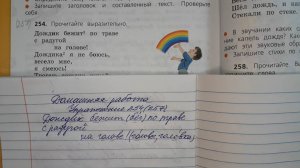 запишите заголовок и составленный текст. Проверьте
себя
254. Прочитайте выразительно.
Дождик бежит¹ по траве
с радугой
на голове!
Дождика² я не боюсь,
весело мне,
я смеюсь!
Шёл дождь, я
Стекали по стене.
В звучании каких
ние капель дождя? Как
дают эти звуковые образ
Запишите стихи по
258. Прочитайте
Домашняя работа
Упражнение 254(257)
Дождик бежит (бег) по траве
с радугой
на голове (голова, головка)